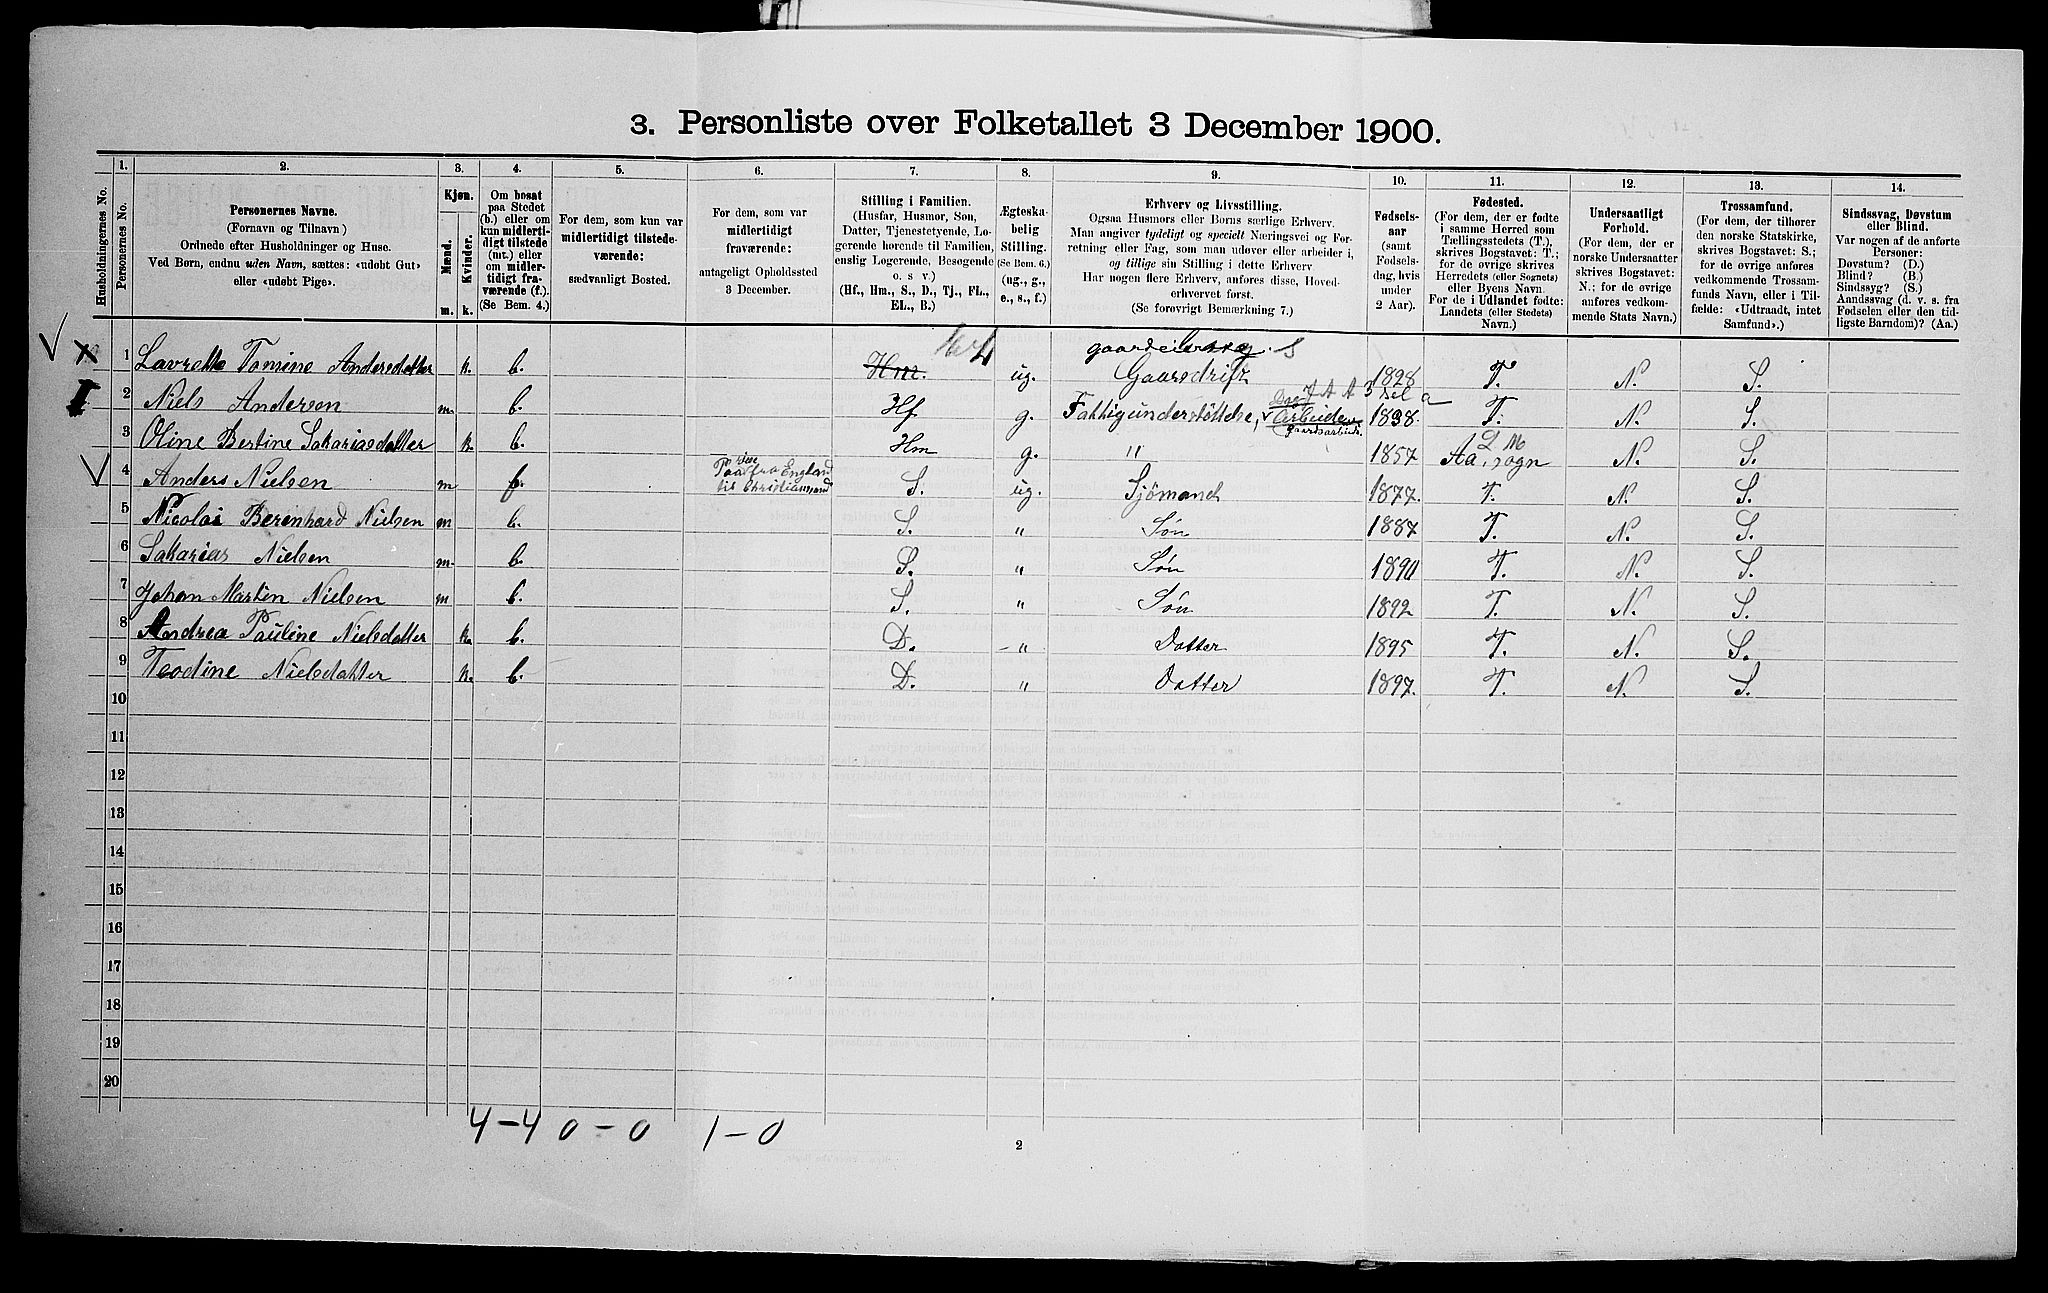 3. Personliste over Folketallet 3 December 1900.
1. 2. 3. 4. 5. 6. 7. 8. 9. 10. 11. 12. 13. 14.
Husholdningernes No.
Personernes No.
Personernes Navne.
(Fornavn og Tilnavn)
Ordnede efter Husholdninger og Huse.
Ved Børn, endnu uden Navn, sættes: «udøbt Gut»
eller «udøbt Pige».
Kjøn.
Mænd.
Kvinder.
m. k.
Om bosat
paa Stedet
(b.) eller om
kun midlerti-
digt tilstede
(mt.) eller
om midler-
tidigt fra-
værende (f.)
(Se Bem. 4.)
For dem, som kun var
midlertidigt tilstede-
værende:
sædvanligt Bosted.
For dem, som var
midlertidigt
fraværende:
antageligt Opholdssted
3 December.
Stilling i Familien.
(Husfar, Husmor, Søn,
Datter, Tjenestetyende, Lo-
gerende hørende til Familien,
enslig Logerende, Besøgende
o. s v.)
(Hf., Hm., S., D., Tj., FL.,
EL., B.)
Ægteska-
belig
Stilling.
(Se Bem. 6.)
(ug., g.,
e., s., f.)
Erhverv og Livsstilling.
Ogsaa Husmors eller Børns særlige Erhverv.
Man angiver tydeligt og specielt Næringsvei og For-
retning eller Fag, som man udøver eller arbeider i,
og tillige sin Stilling i dette Erhverv.
Har nogen flere Erhverv, anføres disse, Hoved-
erhvervet først.
(Se forøvrigt Bemærkning 7.)
Fødsels-
aar
(samt
Fødsels-
dag, hvis
under
2 Aar).
Fødested.
(For dem, der er fødte
i samme Herred som
Tællingsstedets (T.),
skrives Bogstavet: T.;
for de øvrige skrives
Herredets (eller Sognets)
eller Byens Navn.
For de i Udlandet fødte:
Landets (eller Stedets)
Navn.)
Undersaatligt
Forhold.
(For dem, der er
norske Undersaatter
skrives Bogstavet:
N.; for de øvrige
anføres vedkom-
mende Stats Navn.)
Trossamfund.
(For dem, der tilhører
den norske Statskirke,
skrives Bogstavet: S.;
for de øvrige anføres
vedkommende Trossam-
funds Navn, eller i Til-
fælde: «Udtraadt, intet
Samfund».)
Sindssvag, Døvstum
eller Blind.
Var nogen af de anførte
Personer:
Døvstum? (D.)
Blind? (B.)
Sindssyg? (S.)
Aandssvag (d. v. s. fra
Fødselen eller den tid-
ligste Barndom)? (Aa.)
1 Lavrette Tomine Andersdatter k. b. Hm. ug. Gaarsdrift 1828 T. N. S.
2 Niels Andersen m. b. Hf g. Fattigunderstøttelse, Arbeider 1838. T. N. S.
gaardsarbeid.
3 Oline Bestine Sakariasdatter k. b. Hm g. " 1857 Aa. sogn N. S.
4 Anders Nielsen m f. Paa reise fra England
til Christianssand S. ug. Sjömand 1877. T. N. S.
5 Nicolai Berenhard Nielsen m b. S. " Søn 1887 T. N. S.
6 Sakarias Nielsen m. b. S. " Søn 1890 T. N. S.
7 Johan Martin Nielsen m b. S. " Søn 1892 T. N. S.
8 Andrea Pauline Nielsdatter k. b. D. " Datter 1895 T. N. S.
9 Teodine Nielsdatter k. b. D. " Datter 1897. T. N. S.
10
11
12
13
14
15
16
17
18
19
20
4-4 0-0 1-0
2